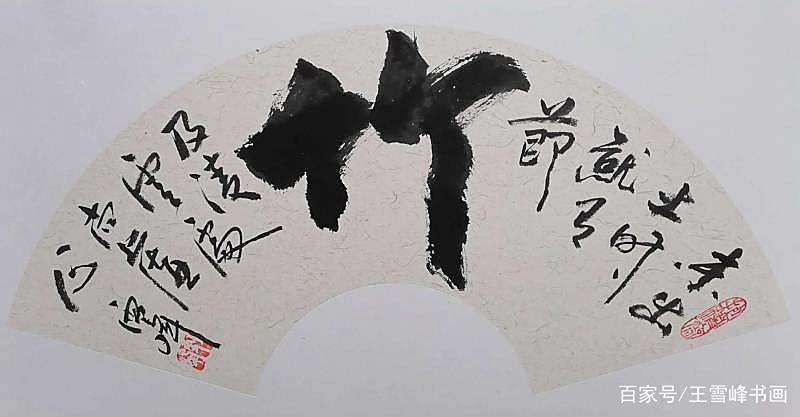 竹
未出
土时
就有
節
及凌
雲處
尚虛
心 雪峰
百家号/王雪峰书画